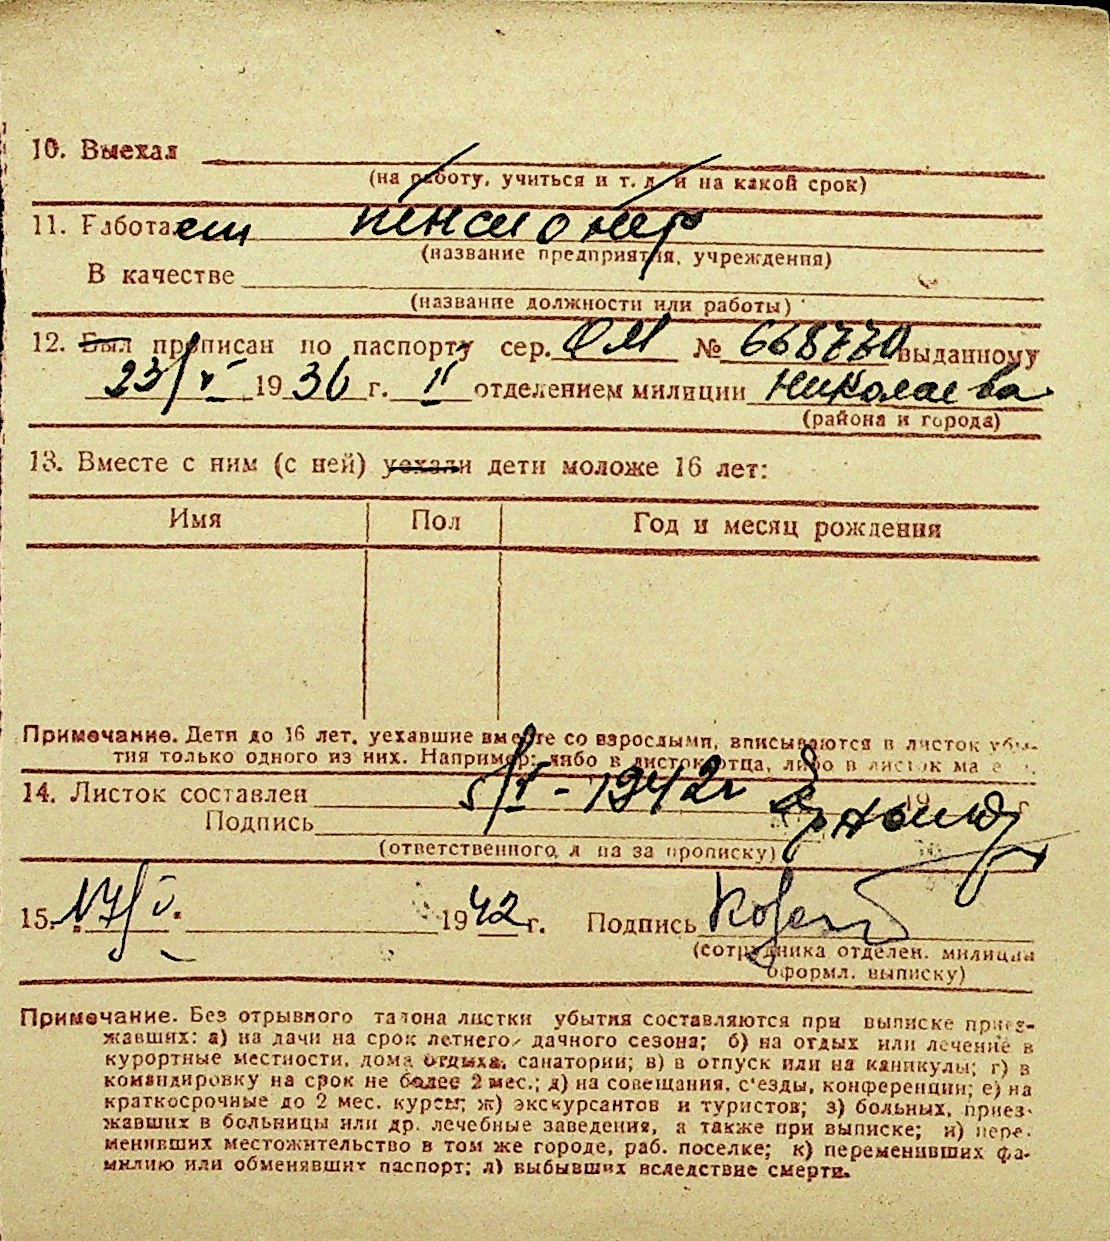 10. Выехал
(на работу, учиться и т. д. и на какой срок)
11. Работает пенсионер
(название предприятия, учреждения)
В качестве
(название должности или работы)
12. Был прописан по паспорту сер. ОМ № 668770 выданному
23/V 1936 г. II отделением милиции Николаева
(района и города)
13. Вместе с ним (с ней) уехали дети моложе 16 лет:
Имя Пол Год и месяц рождения
Примечание. Дети до 16 лет, уехавшие вместе со взрослыми, вписываются в листок убы-
тия только одного из них. Например: либо в листок отца, либо в листок
14. Листок составлен 5/V - 1942 г 19 г
Подпись
(ответственного л на за прописку)
15. 17/V. 1942 г. Подпись
(сотрудника отделен. милиции
оформл. выписку)
Примечание. Без отрывного талона листки убытия составляются при выписке приез-
жавших: а) на дачи на срок летнего дачного сезона; б) на отдых или лечение в
курортные местности, дома отдыха, санатории; в) в отпуск или на каникулы; г) в
командировку на срок не более 2 мес.; д) на совещания, с'езды, конференции; е) на
краткосрочные до 2 мес. курсы; ж) экскурсантов и туристов; з) больных, приез-
жавших в больницы или др. лечебные заведения, а также при выписке; и) пере-
менивших местожительство в том же городе, раб. поселке; к) переменивших фа-
милию или обменявших паспорт; л) выбывших вследствие смерти.